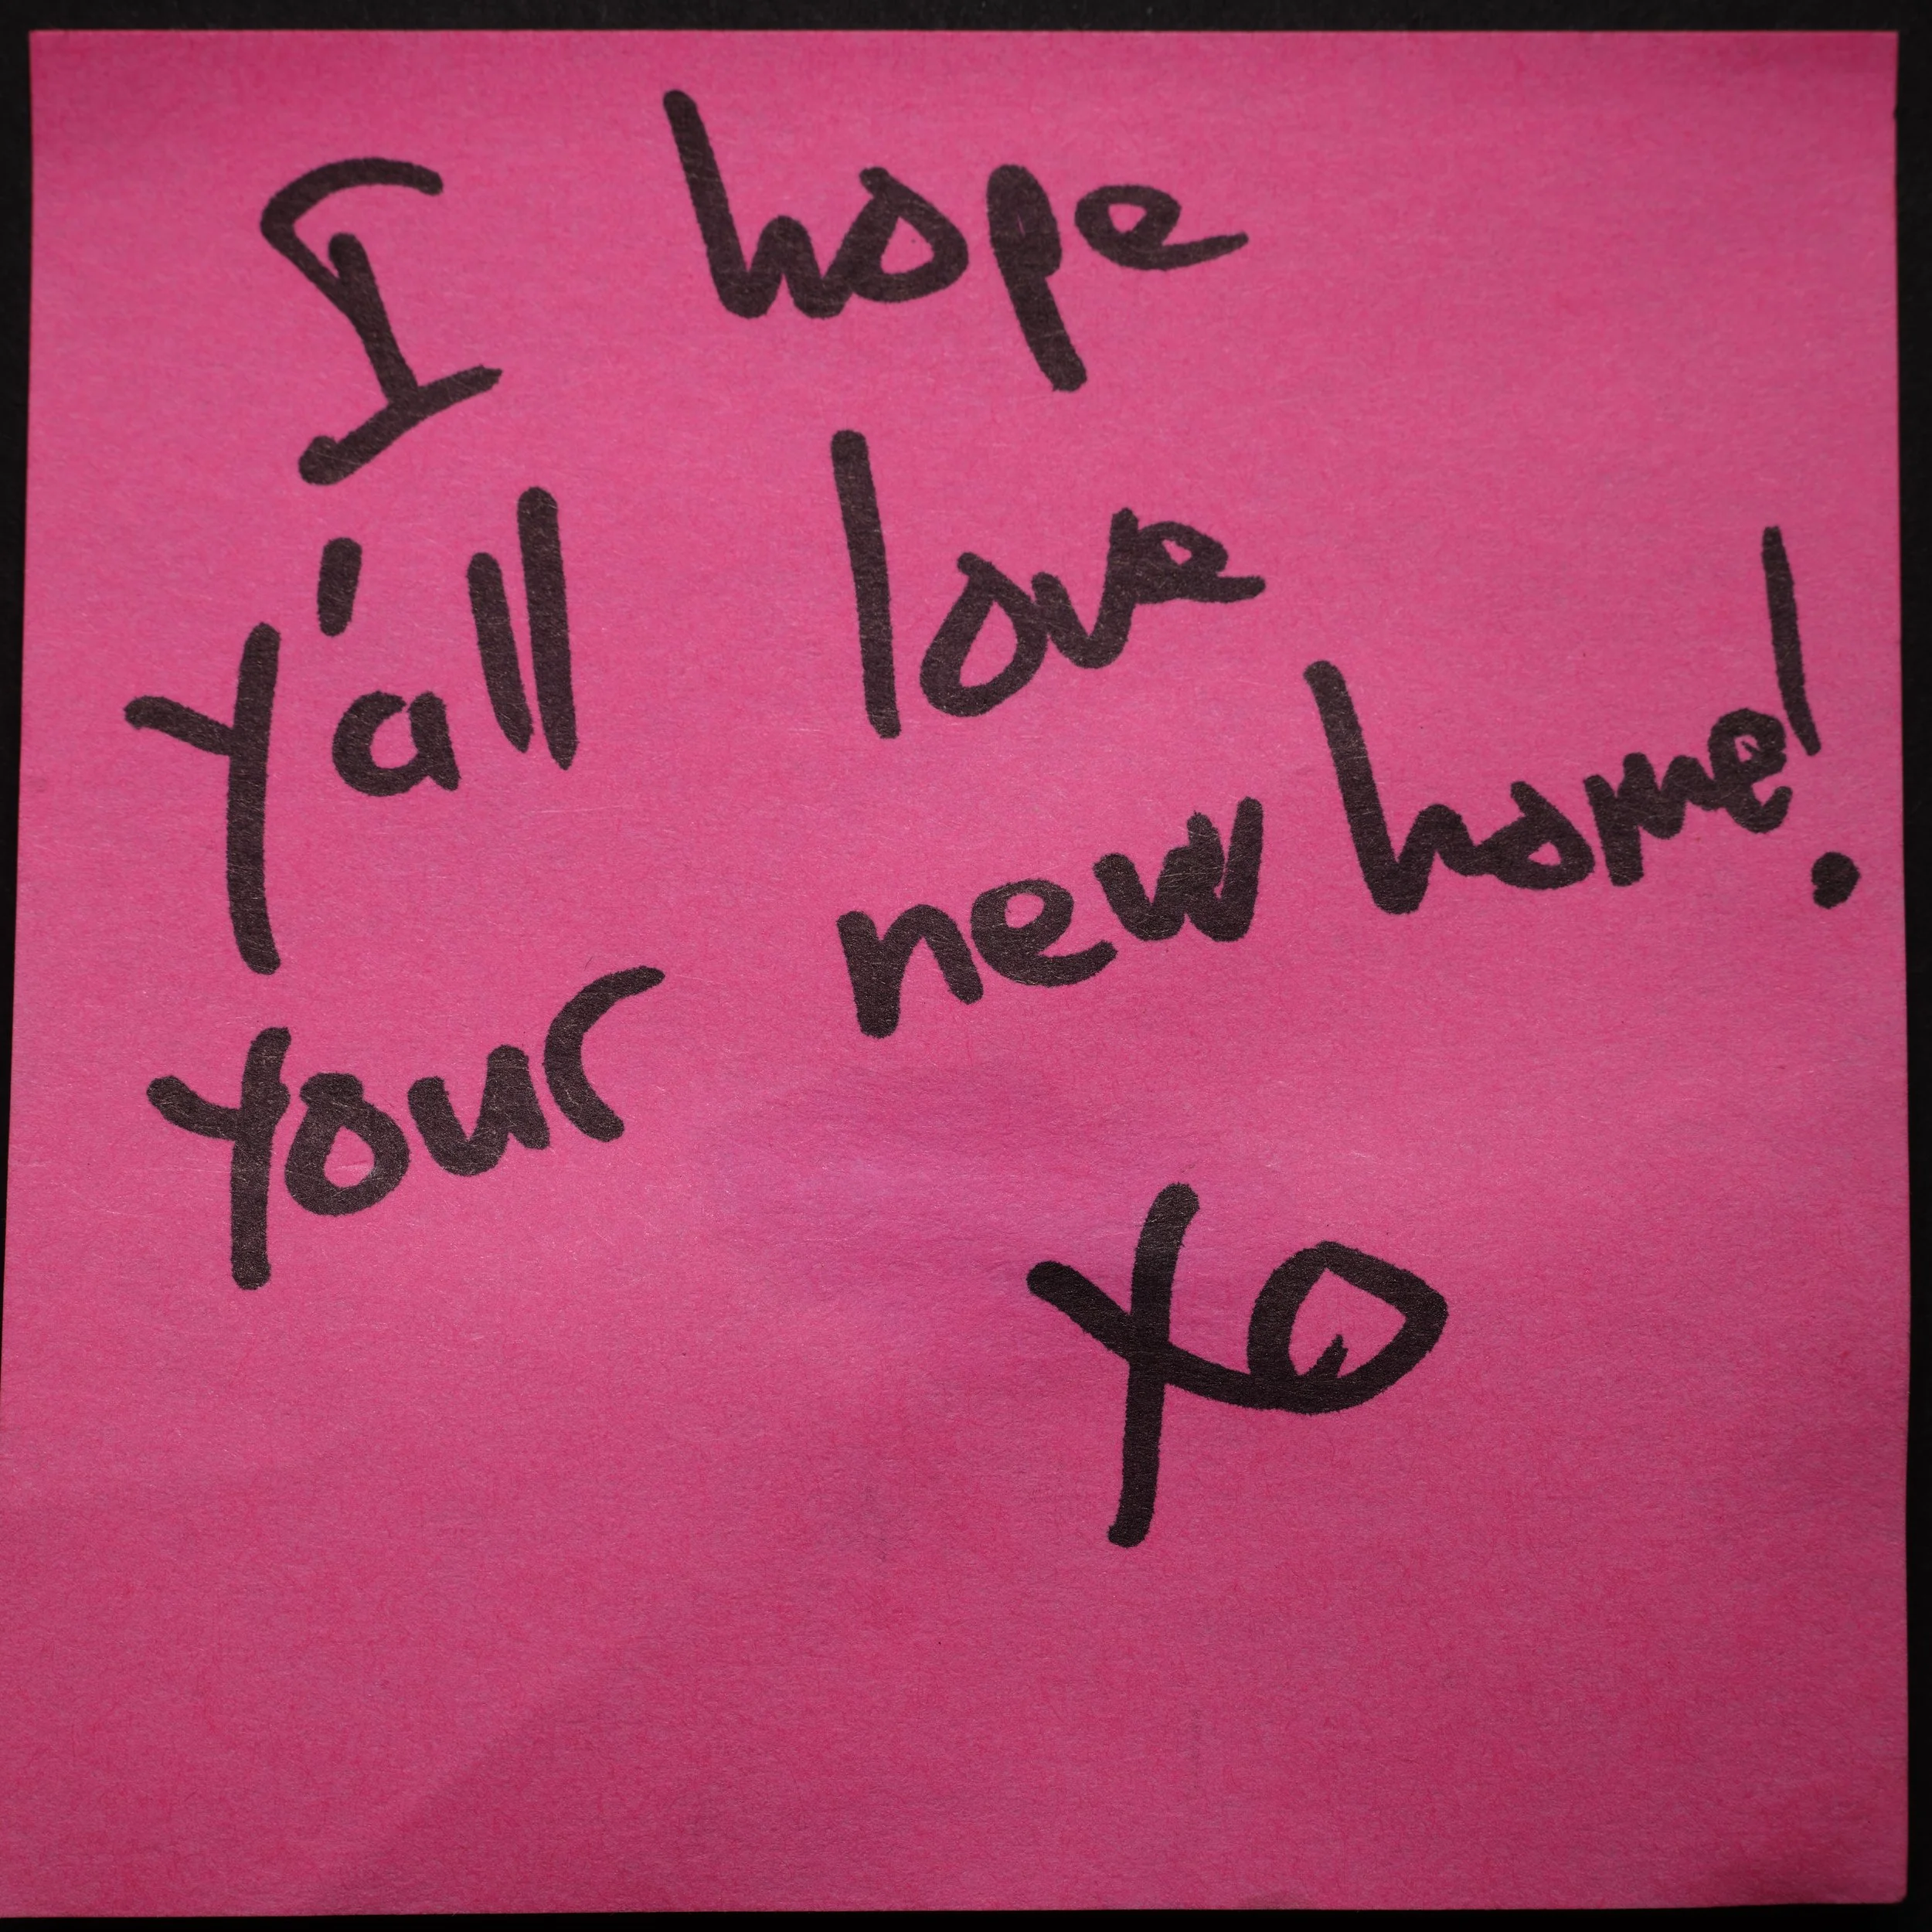 I hope
Y'all love
Your new home!
XO